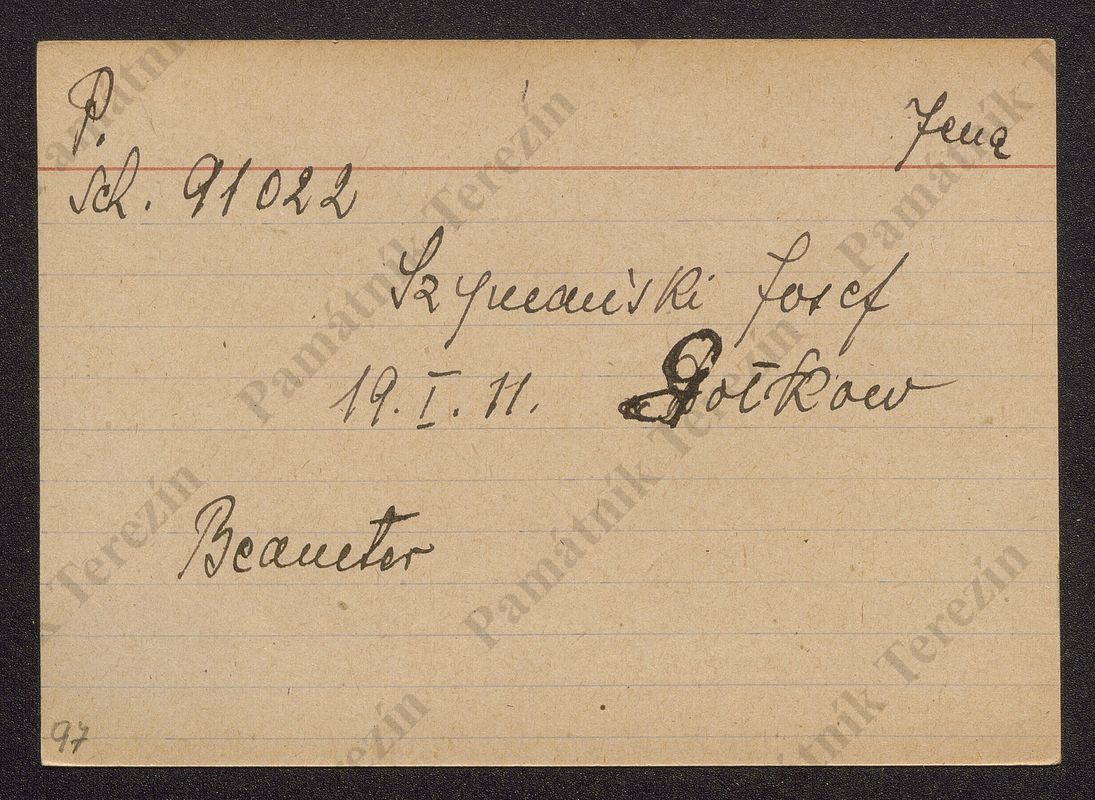 P.
Jena
Sch. 91022
Szymański Josef
19. I. 11.
Beamter
97
Památník Terezín
Památník Terezín
Památník Terezín
Památník Terezín
Památník Terezín